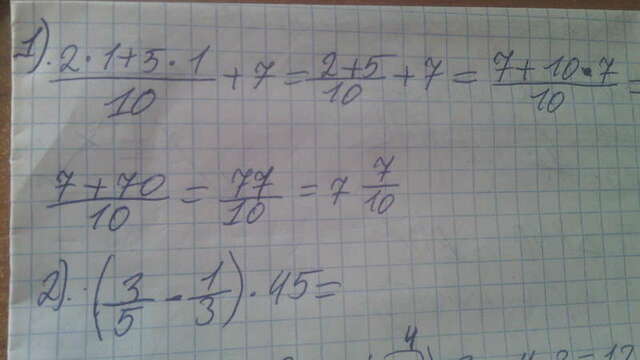 1). (2·1+5·1)/10 + 7 = (2+5)/10 + 7 = (7+10·7)/10 =
(7+70)/10 = 77/10 = 7 7/10
2). (3/5 - 1/3) · 45 =
4